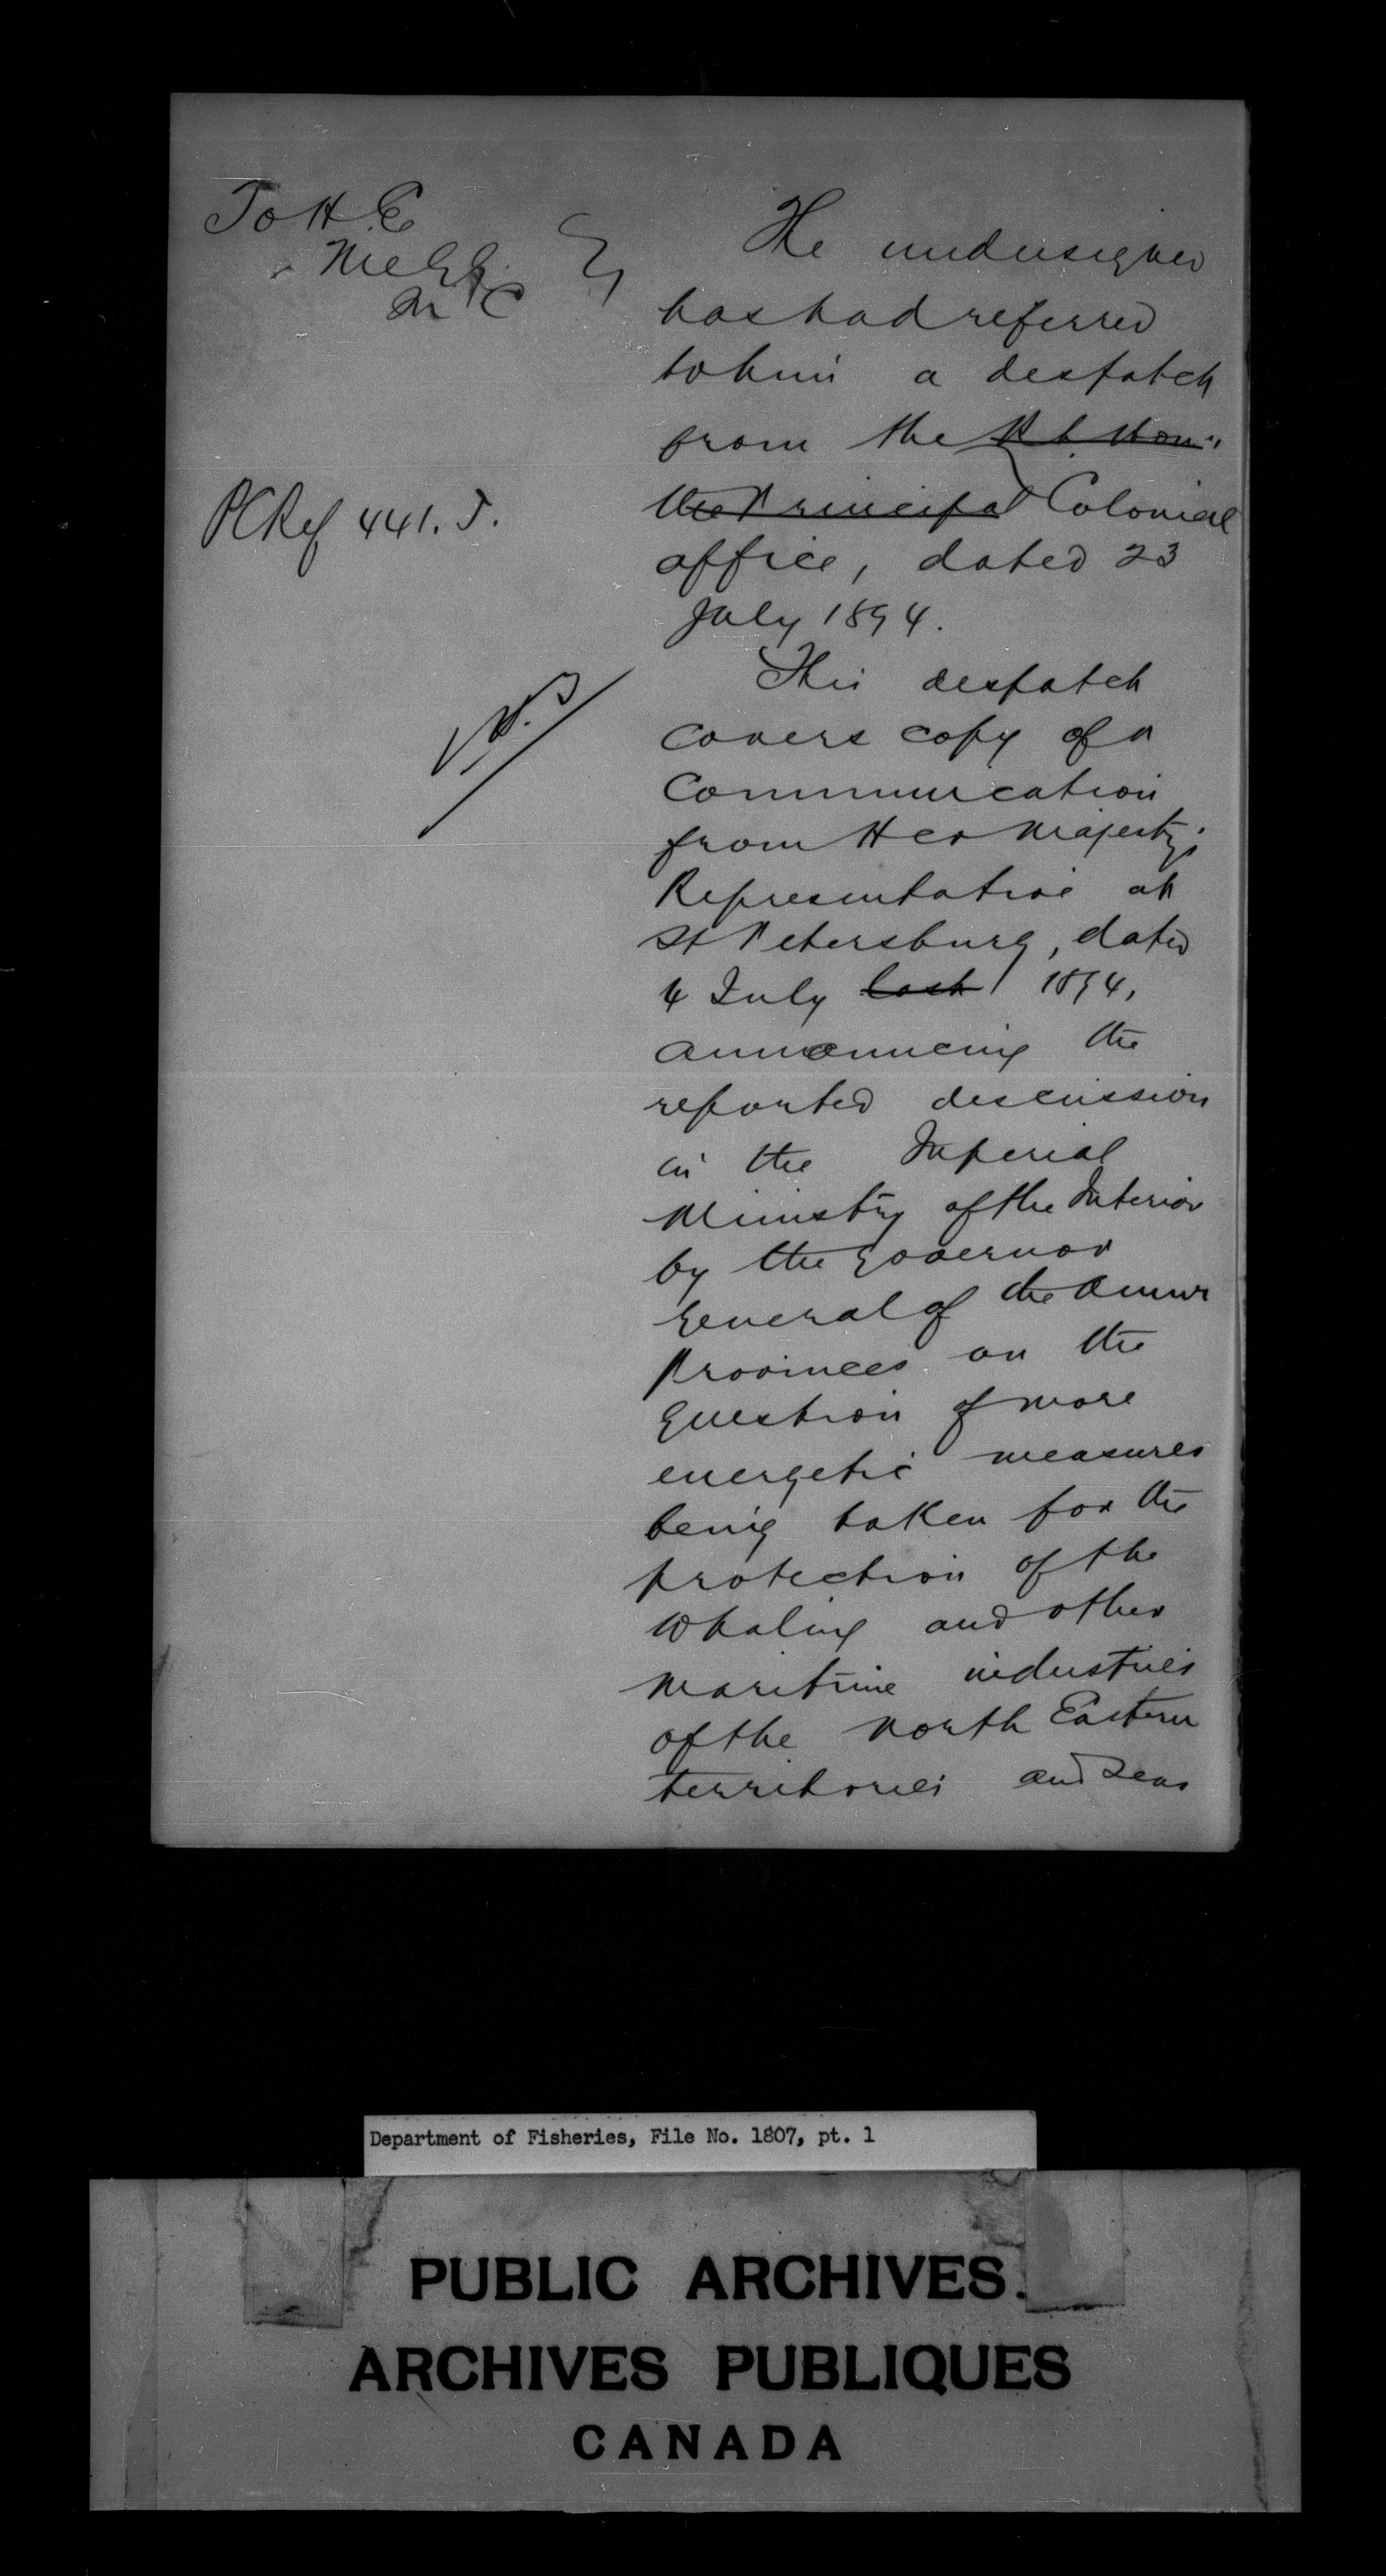 To H. E.
in C
PC Ref 441. J.
The undersigned
has had referred
to him a despatch
from the Rt. Hon:
the Principal Colonial
office, dated 23
July 1894.
This despatch
covers copy of a
Communication
from Her Majesty's
Representative at
St Petersburg, dated
4 July last 1894,
announcing the
reported discussion
in the Imperial
Ministry of the Interior
by the Governor
General of the Amur
Provinces on the
question of more
energetic measures
being taken for the
protection of the
Whaling and other
maritime industries
of the North Eastern
territories and seas
Department of Fisheries, File No. 1807, pt. 1
PUBLIC ARCHIVES
ARCHIVES PUBLIQUES
CANADA